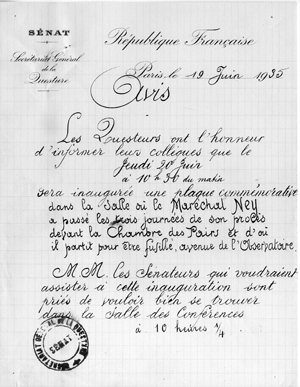 SÉNAT
Secrétariat Général
de la
Questure
République Française
Paris, le 19 Juin 1935
Avis
Les Questeurs ont l'honneur
d'informer leurs collègues que le
Jeudi 20 Juin
à 10 h 30 du matin
sera inaugurée une plaque commémorative
dans la Salle où le Maréchal Ney
a passé les trois journées de son procès
devant la Chambre des Pairs et d'où
il partit pour être fusillé, avenue de l'Observatoire.
M.M. les Sénateurs qui voudraient
assister à cette inauguration sont
priés de vouloir bien se trouver
dans la Salle des Conférences
à 10 heures 1/4
SECRÉTARIAT GÉNÉRAL DE LA QUESTURE